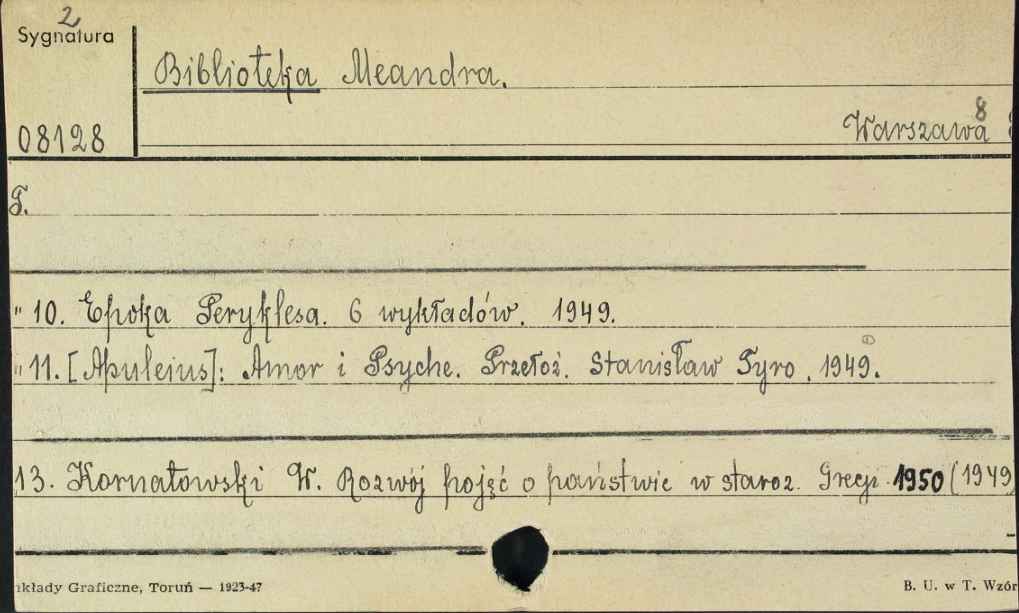 2
Sygnatura
Biblioteka Meandra.
8
08128
Warszawa
T.
" 10. Epoka Peryklesa. 6 wykładów. 1949.
" 11. [Apuleius]: Amor i Psyche. Przełoż. Stanisław Tyro. 1949.
13. Kornatowski W. Rozwój pojęć o państwie w staroż. Grecji. 1950 (1949
kłady Graficzne, Toruń — 1923-47
B. U. w T. Wzór